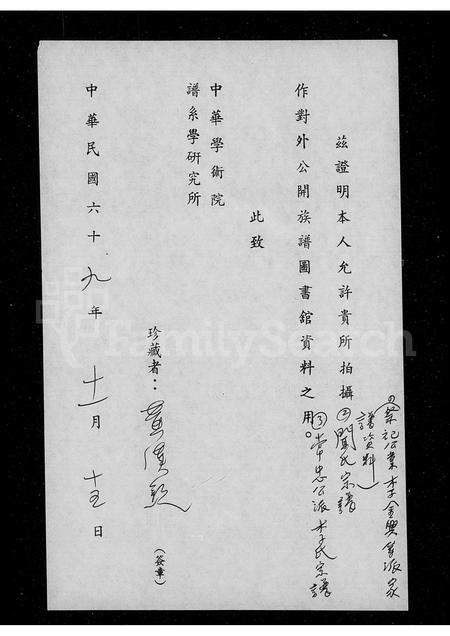 茲證明本人允許貴所拍攝
①(祭祀公業李金興等派家
譜資料)
②閻氏宗譜
作對外公開族譜圖書館資料之用。
③常忠公派李氏宗譜
此致
中華學術院
譜系學研究所
珍藏者:
(簽章)
中華民國六十九年十一月十五日
FamilySearch